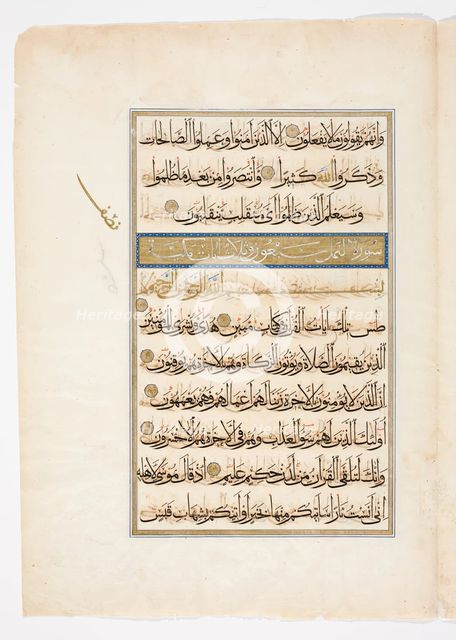 وانهم يقولون ما لا يفعلون الا الذين امنوا وعملوا الصالحات
وذكروا الله كثيرا وانتصروا من بعد ما ظلموا
وسيعلم الذين ظلموا اى منقلب ينقلبون
سورة النمل سبعون وثلاث ايات مكية
بسم الله الرحمن الرحيم
طس تلك ايات القرآن وكتاب مبين هدى وبشرى للمؤمنين
الذين يقيمون الصلاة ويؤتون الزكاة وهم بالاخرة هم يوقنون
ان الذين لا يؤمنون بالاخرة زينا لهم اعمالهم فهم يعمهون
اولئك الذين لهم سوء العذاب وهم فى الاخرة هم الاخسرون
وانك لتلقى القرآن من لدن حكيم عليم اذ قال موسى لاهله
انى آنست نارا سآتيكم منها بخبر او آتيكم بشهاب قبس
نصف
Heritage